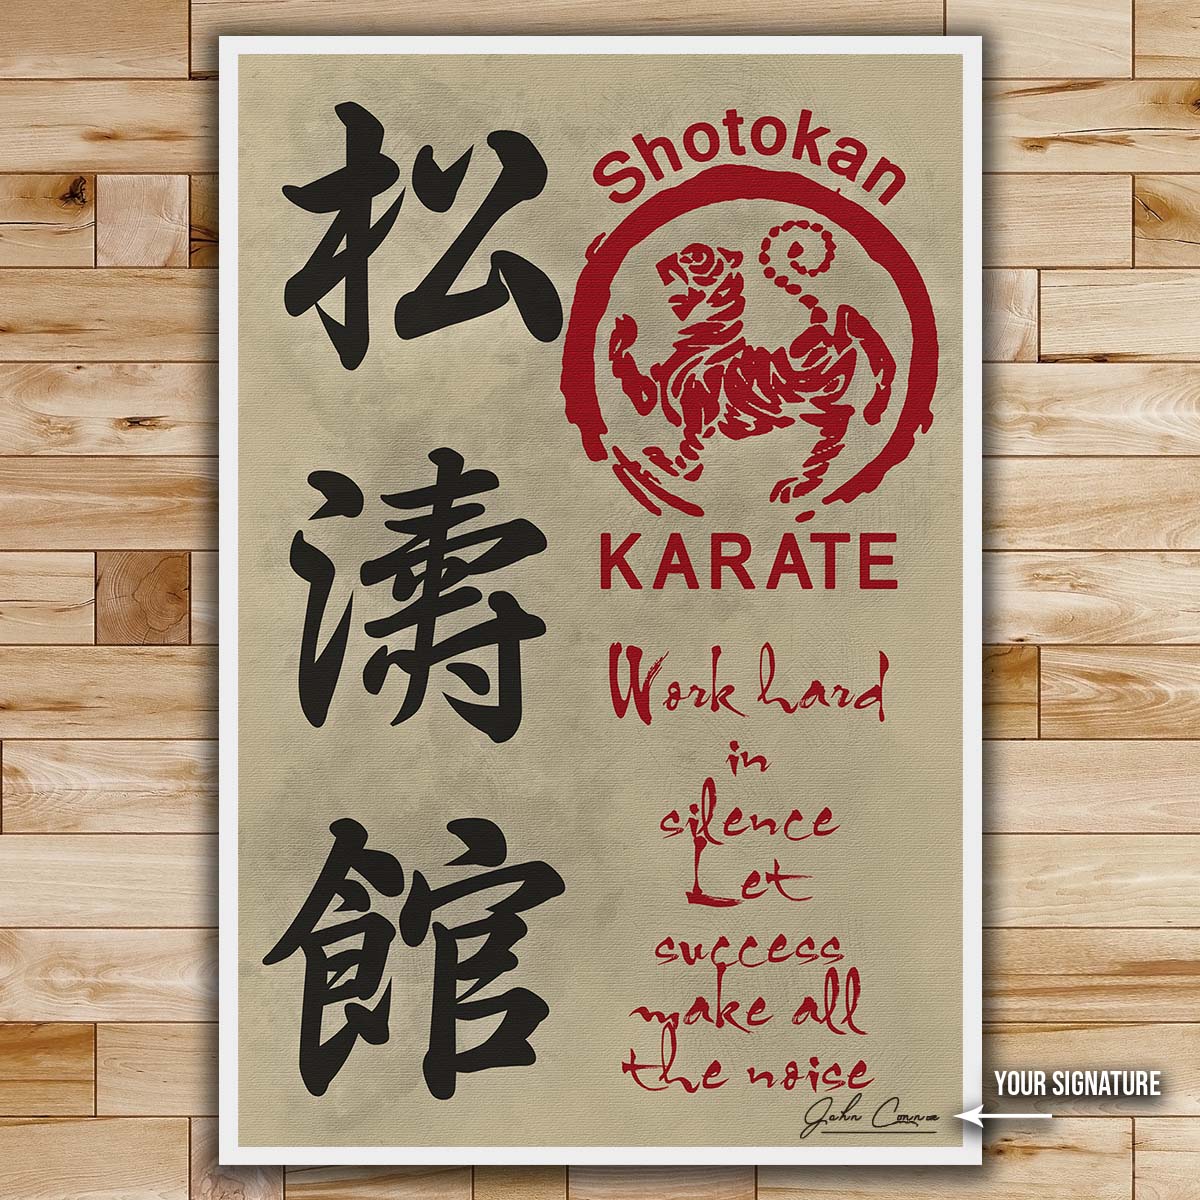 松
濤
館
Shotokan
KARATE
Work hard
in
silence
Let
success
make all
the noise
YOUR SIGNATURE